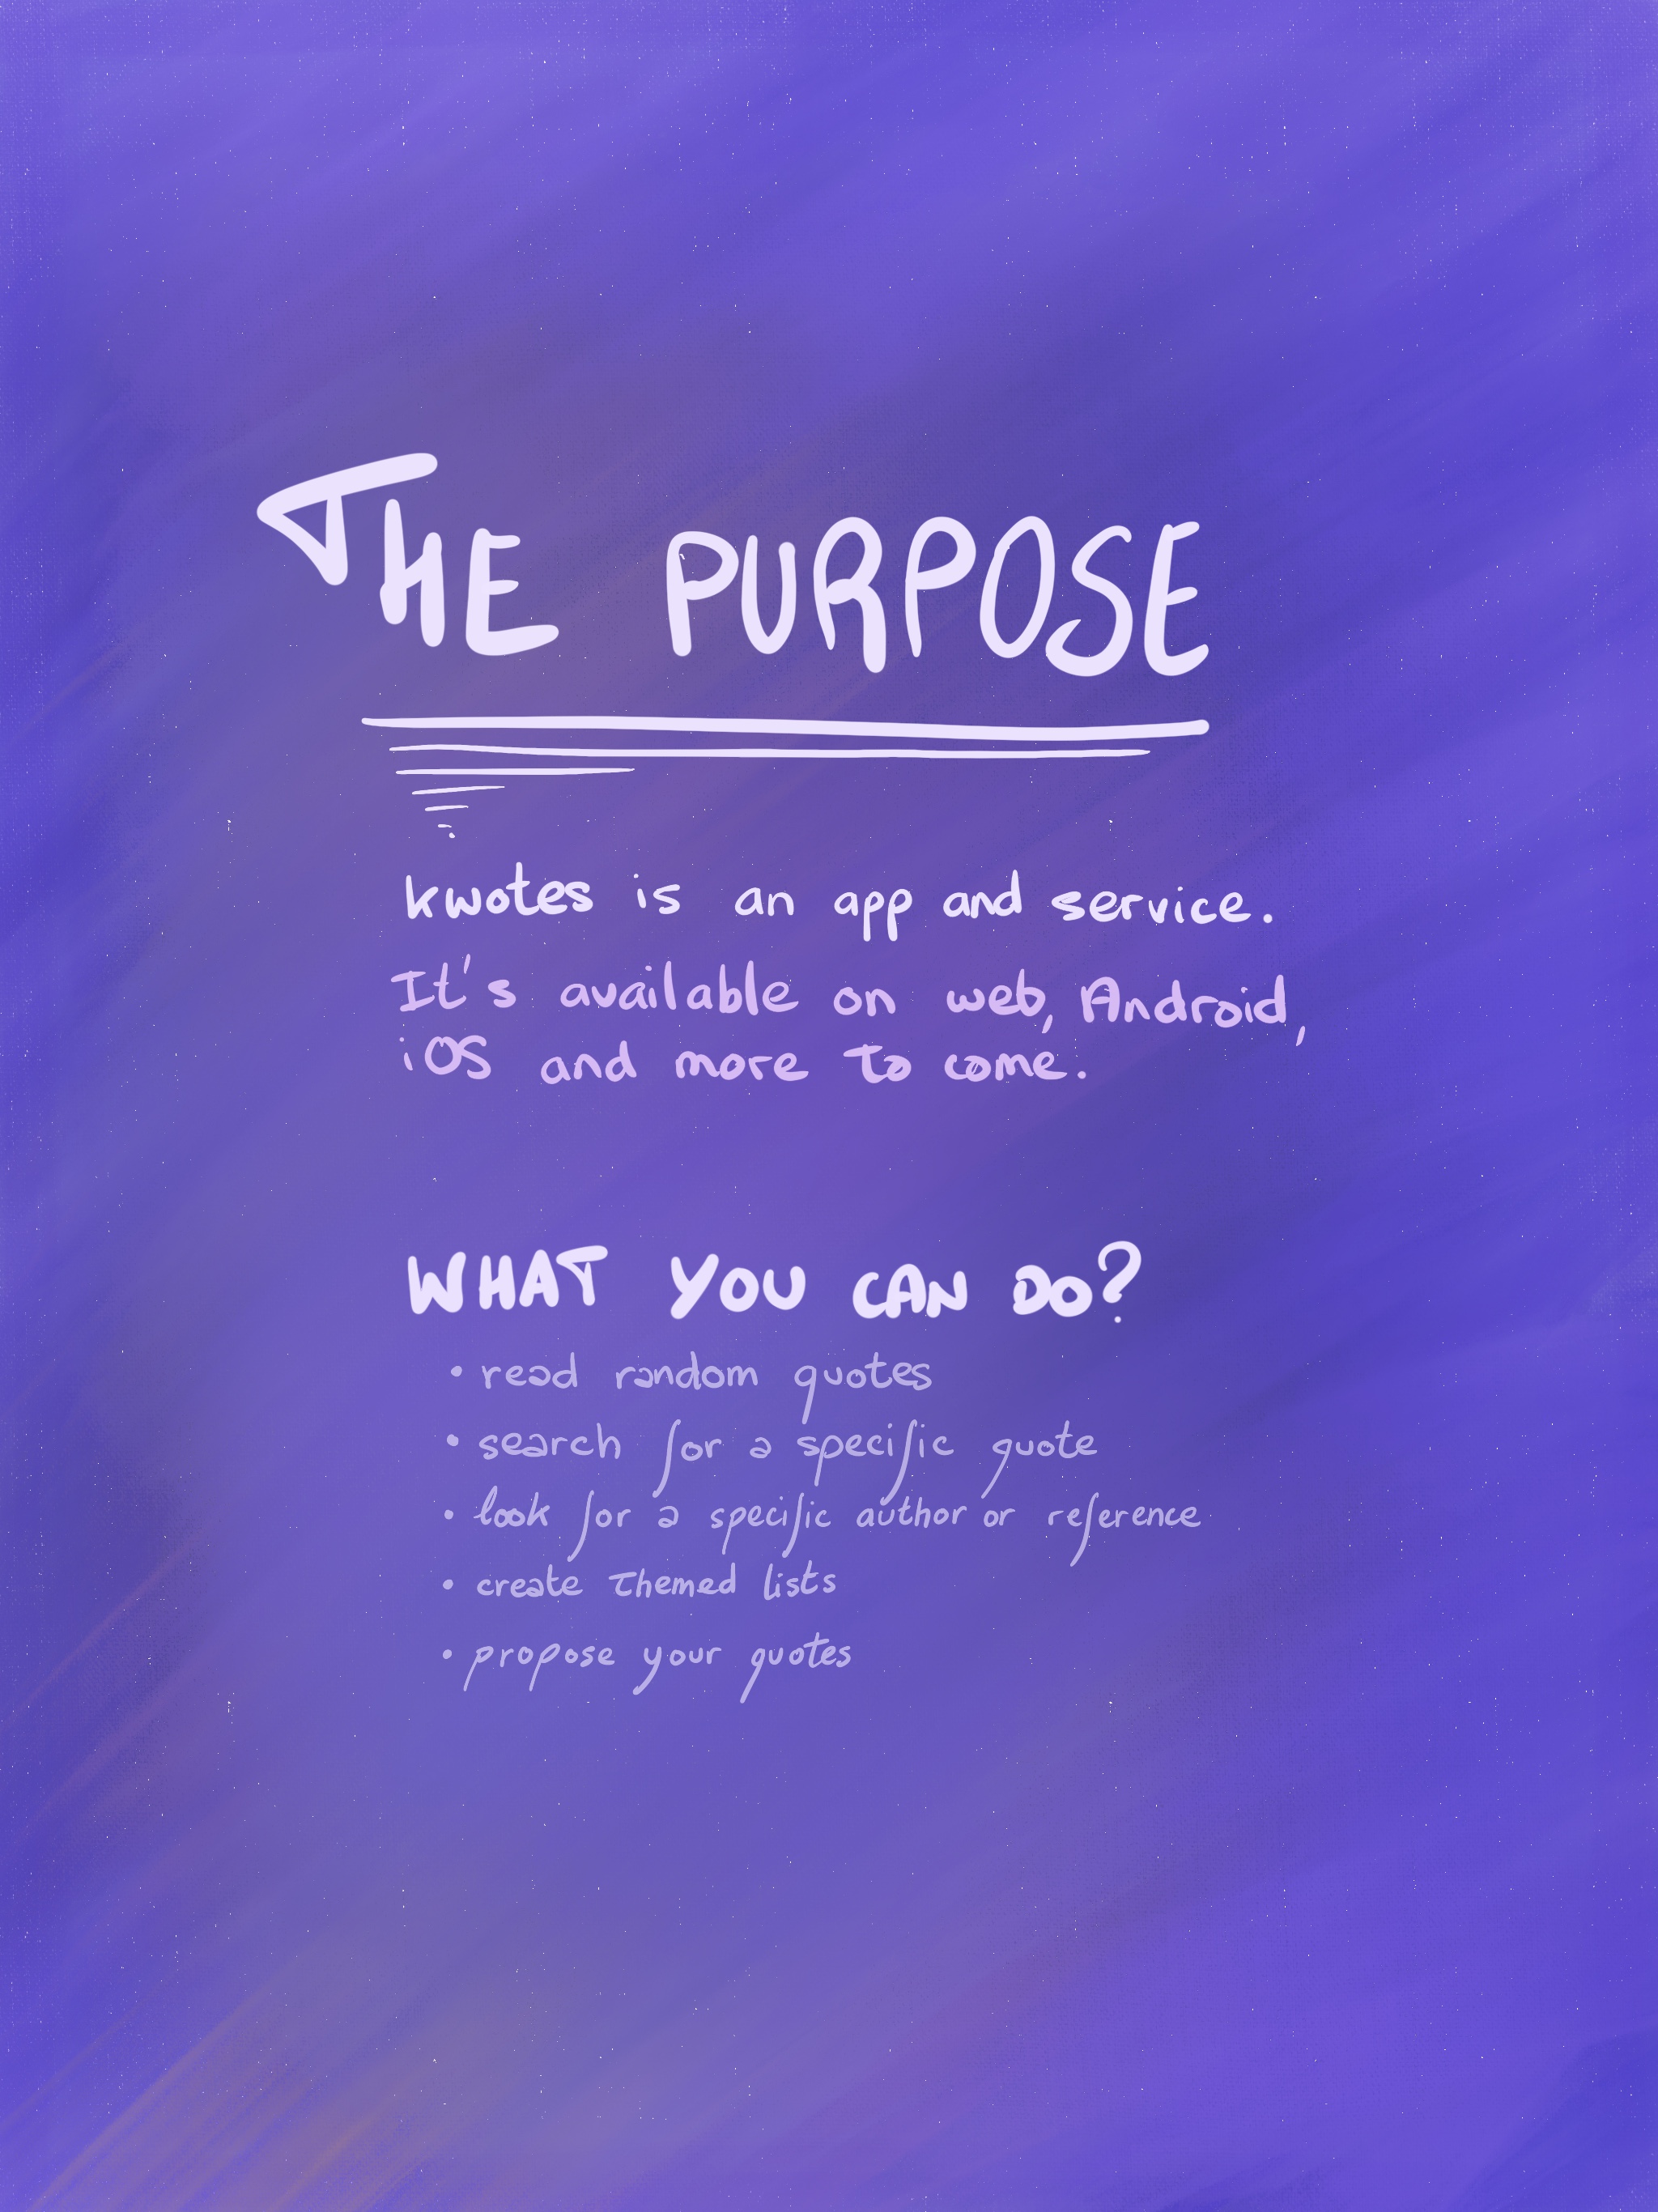 THE PURPOSE
kwotes is an app and service.
It's available on web, Android,
iOS and more to come.
WHAT YOU CAN DO?
• read random quotes
• search for a specific quote
• look for a specific author or reference
• create themed lists
• propose your quotes